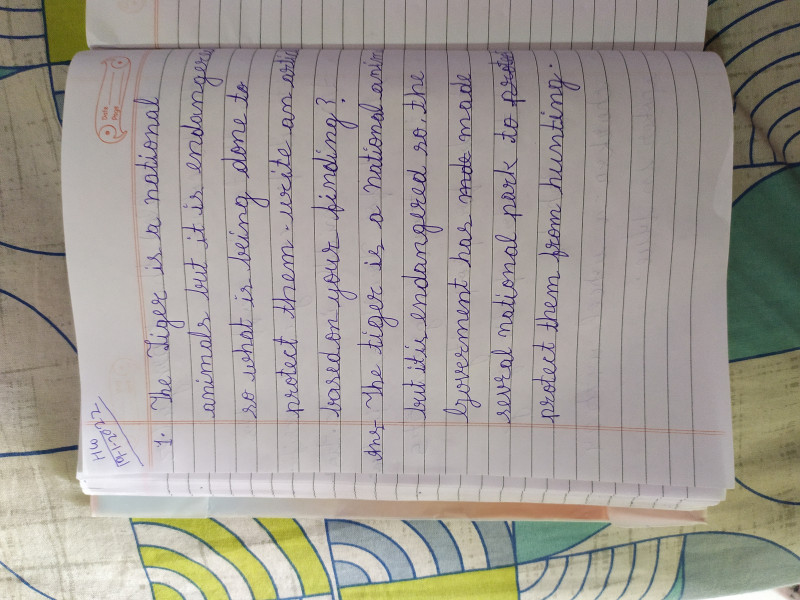 Date
Page
HW
1. The Tiger is a national
animals but it is endangere
so what is being done to
protect them. write an artic
based on your finding?
Ans- The tiger is a national anim
but it is endangered so, the
Goverment has made
sevral national park to
protect them from hunting.